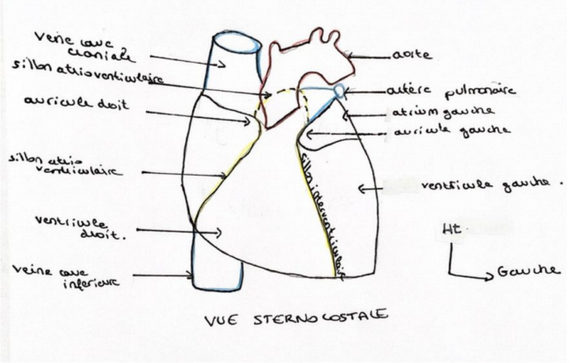 veine cave
craniale
sillon atrioventriculaire
auricule droit
sillon atrio
ventriculaire
ventricule
droit.
veine cave
inférieure
aorte
artère pulmonaire
atrium gauche
auricule gauche
ventricule gauche.
sillon interventriculaire
Ht
Gauche
VUE STERNOCOSTALE